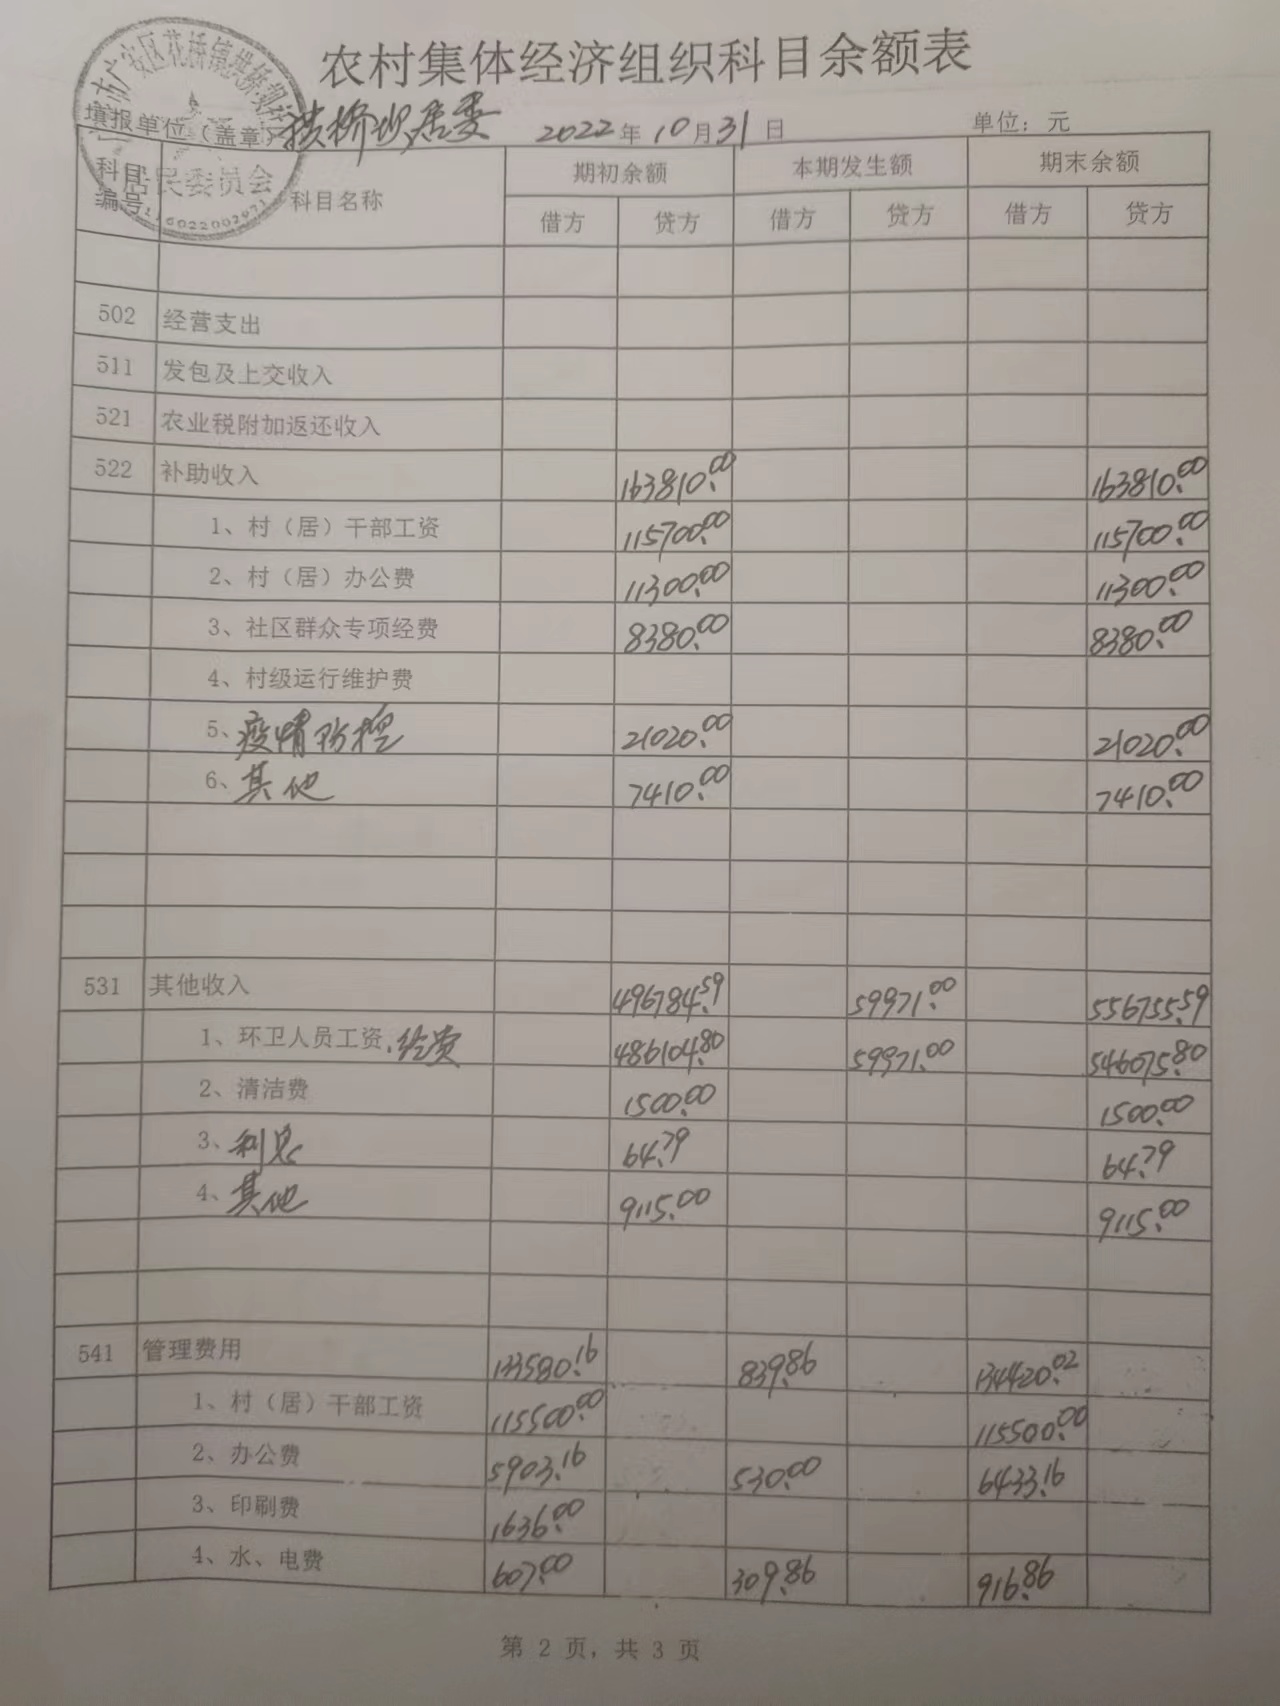 农村集体经济组织科目余额表
填报单位（盖章）拱桥坝居委 2022年10月31日 单位：元
市广安区花桥镇拱桥坝
居民委员会
科目编号 科目名称 期初余额 本期发生额 期末余额
借方 贷方 借方 贷方 借方 贷方
502 经营支出
511 发包及上交收入
521 农业税附加返还收入
522 补助收入 163810.00 163810.00
1、村（居）干部工资 115700.00 115700.00
2、村（居）办公费 11300.00 11300.00
3、社区群众专项经费 8380.00 8380.00
4、村级运行维护费
5、疫情防控 21020.00 21020.00
6、其他 7410.00 7410.00
531 其他收入 496784.59 59971.00 556755.59
1、环卫人员工资.经费 486104.80 59971.00 546075.80
2、清洁费 1500.00 1500.00
3、利息 64.79 64.79
4、其他 9115.00 9115.00
541 管理费用 133580.16 839.86 134420.02
1、村（居）干部工资 115500.00 115500.00
2、办公费 5903.16 530.00 6433.16
3、印刷费 1636.00
4、水、电费 607.00 309.86 916.86
第 2 页，共 3 页